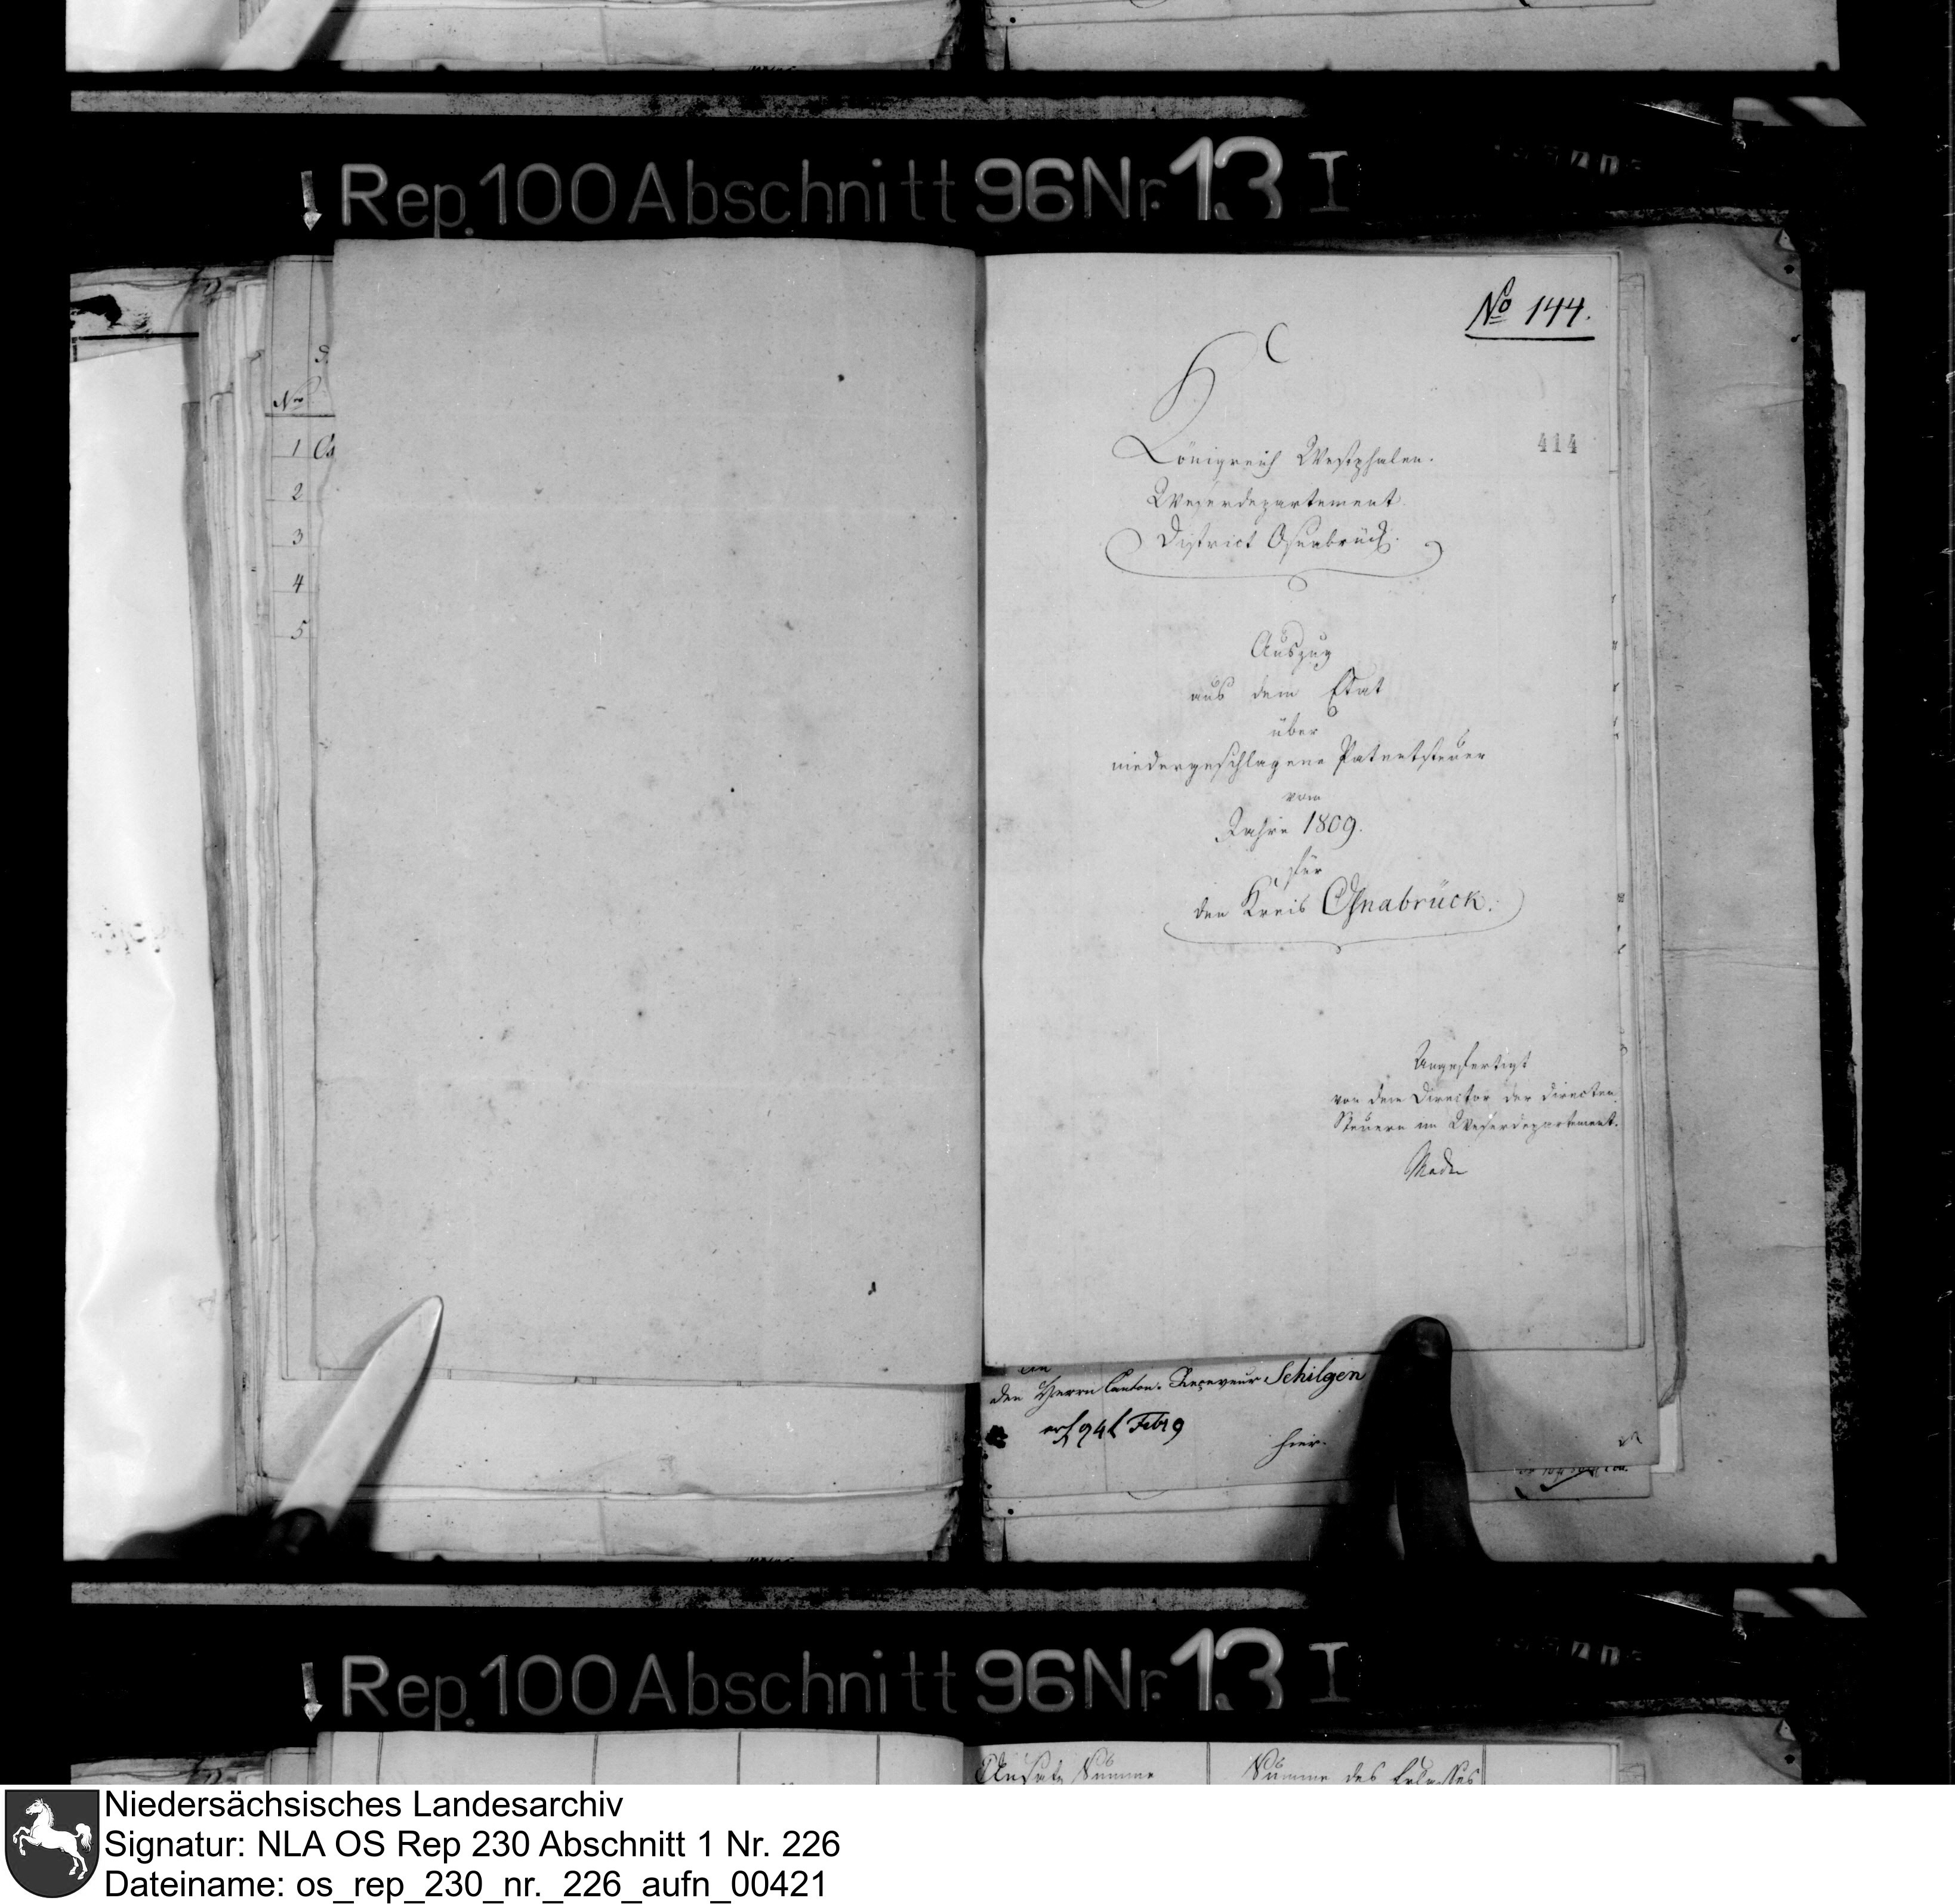 Rep. 100 Abschnitt 96 Nr. 13 I
No 144.
414
Königreich Westphalen.
Weserdepartement
District Osnabrück.
Auszug
aus dem Etat
über
niedergeschlagene Patentsteuer
vom
Jahre 1809.
für
den Kreis Osnabrück.
Ausgefertigt
von dem Director der directen
Steuern im Weserdepartement.
Nro
1 Os
2
3
4
5
An
den Herrn Canton-Receveur Schilgen
Febr 9
hier.
Rep. 100 Abschnitt 96 Nr. 13 I
Ansatz Summe
Summe des Erlasses
Niedersächsisches Landesarchiv
Signatur: NLA OS Rep 230 Abschnitt 1 Nr. 226
Dateiname: os_rep_230_nr._226_aufn_00421